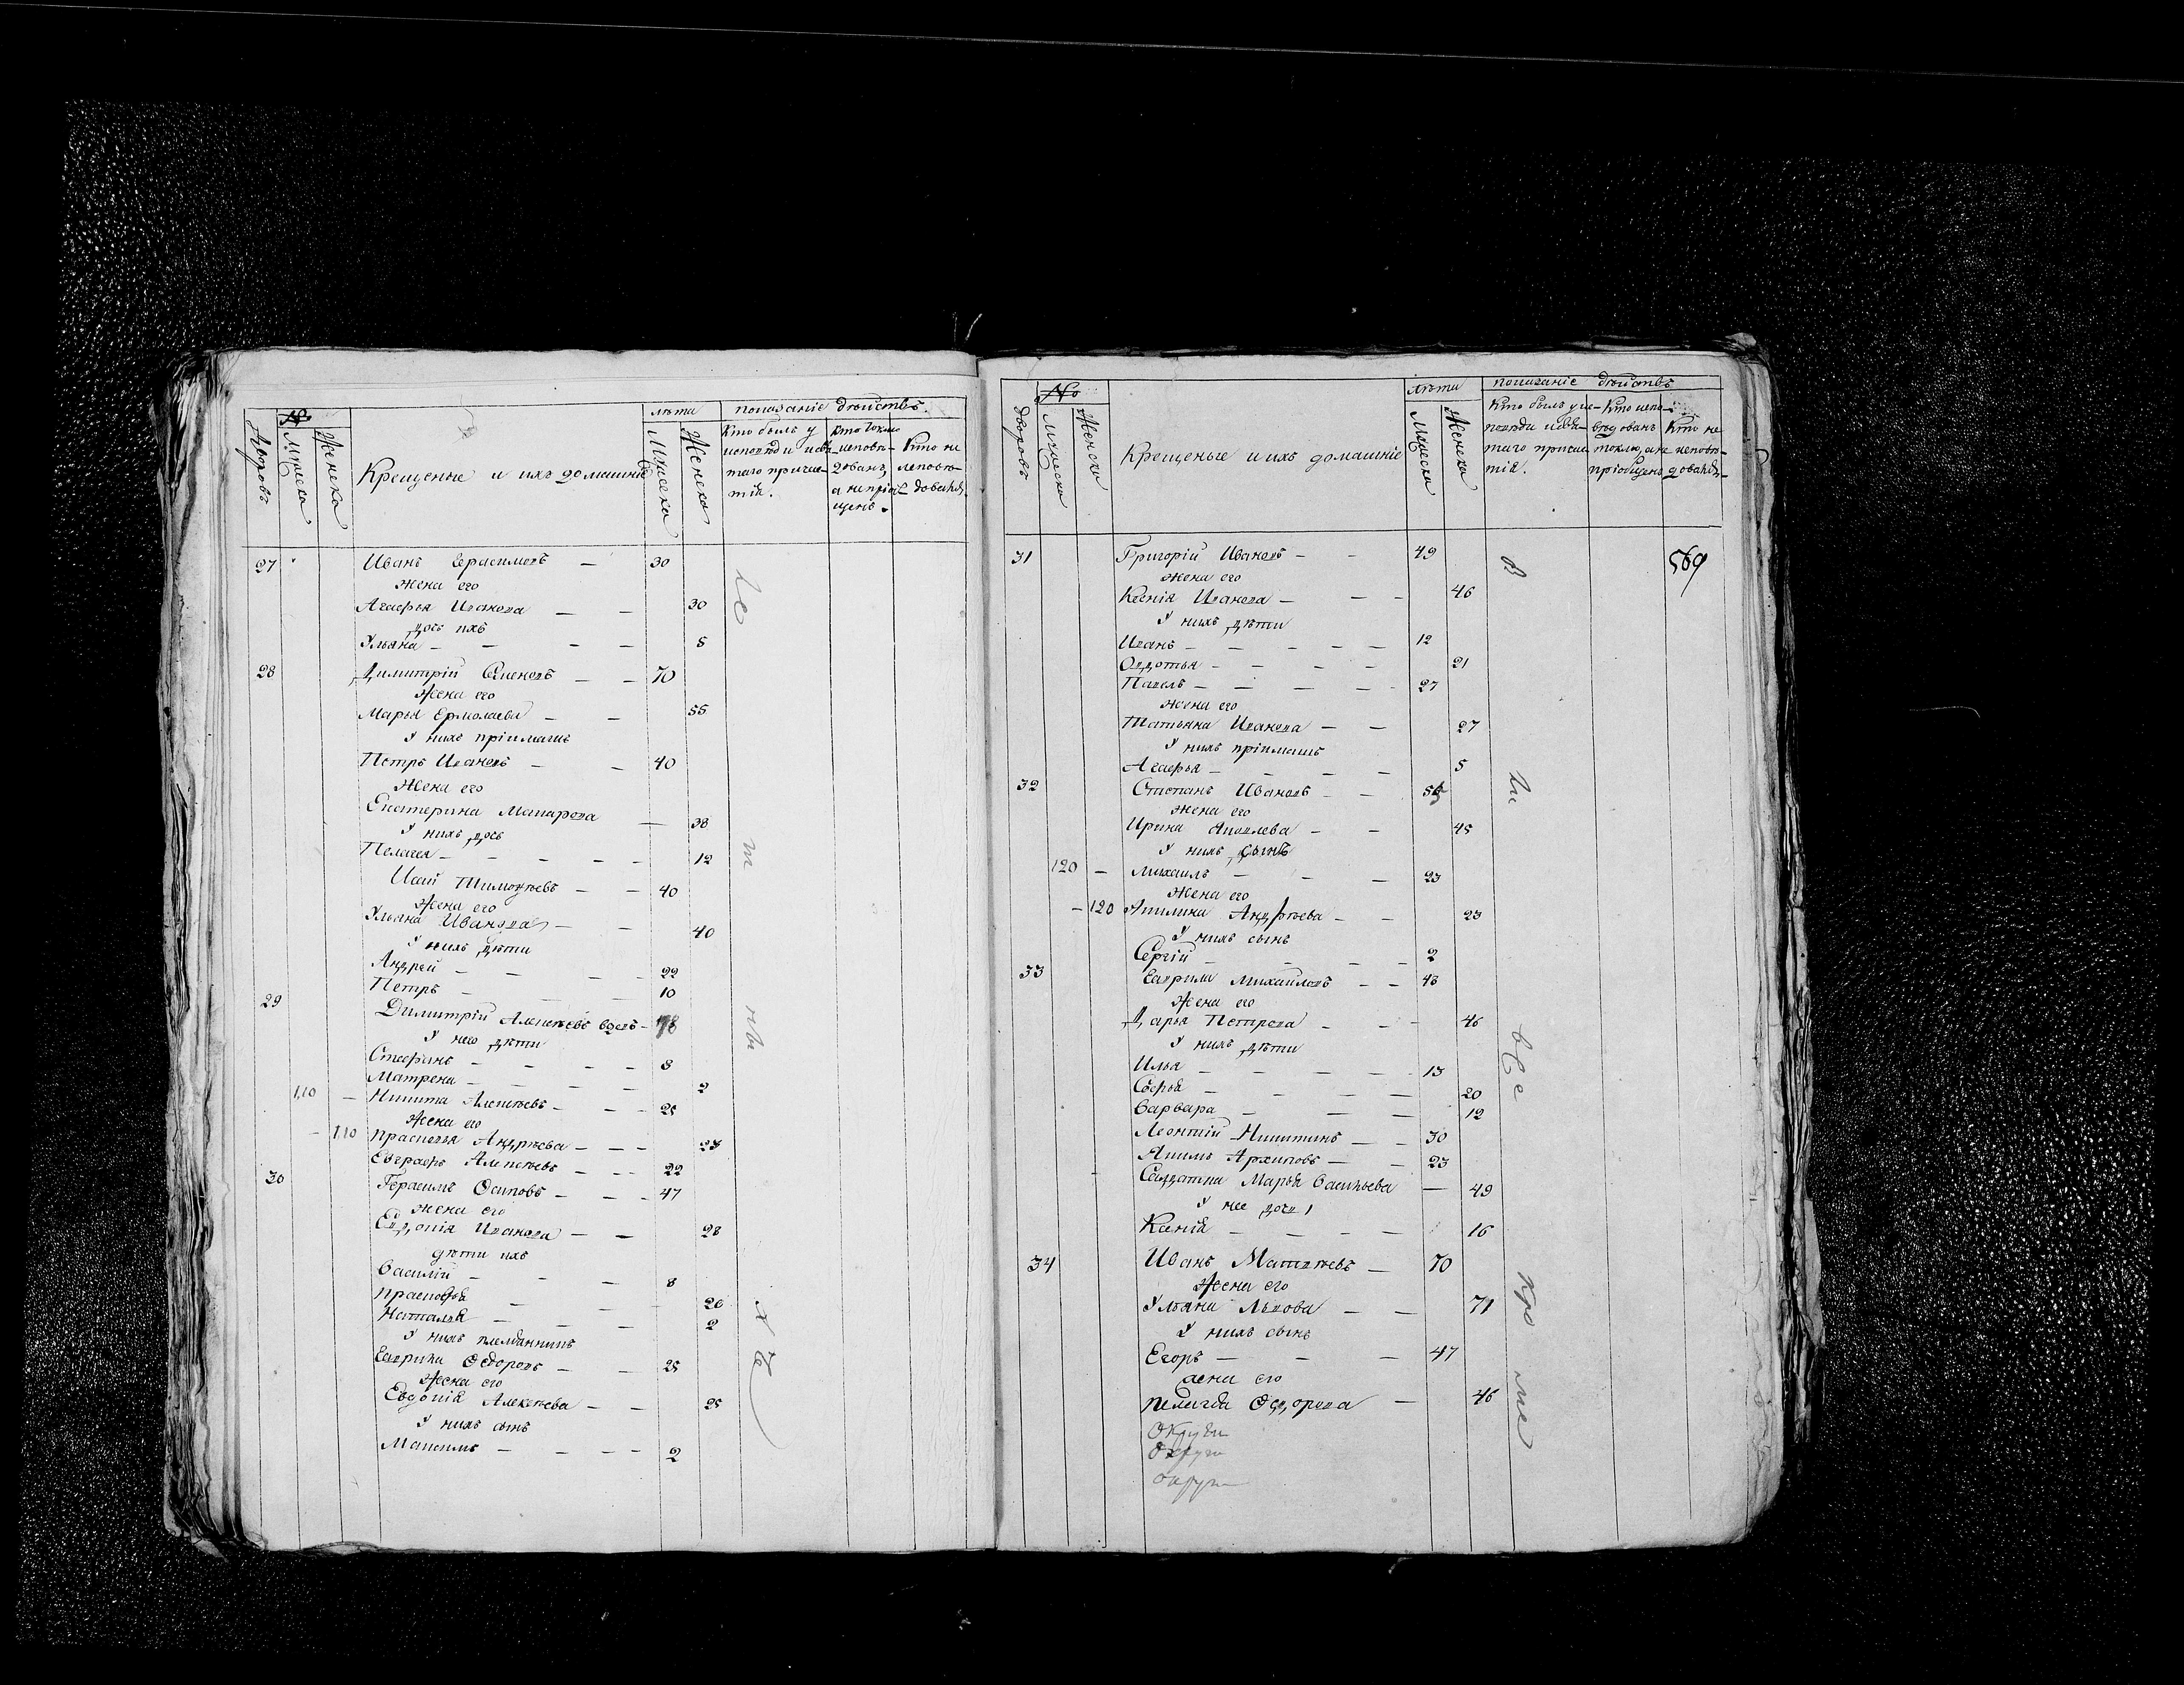 № лѣта показаніе дѣйствъ.
Дворовъ Мужеска Женска Крещеные и ихъ домашніе Мужеска Женска
Кто былъ у исповѣди и свя-таго причас-тія.
Кто токмо исповѣ-дованъ, а не пріоб-щенъ.
Кто не исповѣ-дованъ.
27 Иванъ Герасимовъ — 30
жена его
Агафья Иванова — — 30
дочь ихъ
Ульяна — — — — 5
28 Димитрій Семеновъ — — 70
Жена его
Марья Ермолаева — — 55
У нихъ пріимышъ
Петръ Ивановъ — — 40
Жена его
Екатерина Макарова — 38
У нихъ дочь
Пелагея — — — — — 12
Тимофѣевъ — — 40
Жена его
Ульяна Иванова — — 40
У нихъ дѣти
Андрей — — — — 22
Петръ — — 10
29 Димитрій Алексѣевъ вдовъ — 48
У него дѣти
Стефанъ — — — — 8
Матрена — — — — 2
110 — Никита Алексѣевъ — — — 25
Жена его
— 110 Прасковья Андрѣева — — — 23
Евграфъ Алексѣевъ — — — 22
30 Герасимъ Осиповъ — — — 47
жена его
Евдокія Иванова — — 28
дѣти ихъ
Василій — — — 8
Прасковья — — 20
Наталья — — — 2
У нихъ племянникъ
Гаврила Ѳедоровъ — — 25
Жена его
Евдокія Алексѣева — — 25
У нихъ сынъ
Максимъ — — — — 2
№ лѣта показаніе дѣйствъ
дворовъ Мужеска Женска Крещеные и ихъ домашніе Мужеска Женска
Кто былъ у ис-повѣди и свя-таго причас-тія.
Кто испо-вѣдованъ токмо, а не пріобщенъ
Кто не исповѣ-дованъ
31 Григорій Ивановъ — — 49
569
жена его
Ксенія Иванова — — — 46
У нихъ дѣти
Иванъ — — — — — 12
Овдотья — — — — 21
Павелъ — — — — — 27
жена его
Татьяна Иванова — — 27
У нихъ пріимышъ
Агафья — — — — 5
32 Степанъ Ивановъ — —
жена его
Ирина Яковлева — — 45
У нихъ сынъ
120 — Михаилъ — — — 23
Жена его
— 120 Акилина Андрѣева — — 23
У нихъ сынъ
Сергій — — — — 2
33 Гаврила Михайловъ — — 48
Жена его
Дарья Петрова — — — 46
У нихъ дѣти
Илья — — — — — 13
Софья — — — — 20
Варвара — — — 12
Леонтій Никитинъ — — 30
Якимъ Архиповъ — — 23
Салдатка Марья Васильева — 49
У нее дочь
Ксенія — — — — 16
34 Иванъ Матвѣевъ — 70
Жена его
Ульяна Львова — — 71
У нихъ сынъ
Егоръ — — — 47
жена его
Пелагея Ѳедорова — 46
Округи
Округи
округи